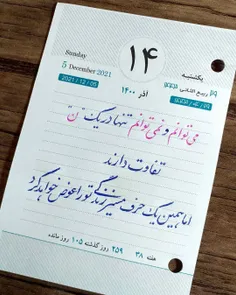 Sunday
5 December 2021
2021 / 12 / 05
۱۴
آذر ۱۴۰۰
یکشنبه
ربیع الثانی
می‌توانم و نمی‌توانم تنها در یک «ن»
تفاوت دارند
اما همین یک حرف مسیر زندگی تو را عوض خواهد کرد
هفته ۳۸ ۲۵۹ روز گذشته ۱۰۵ روز مانده